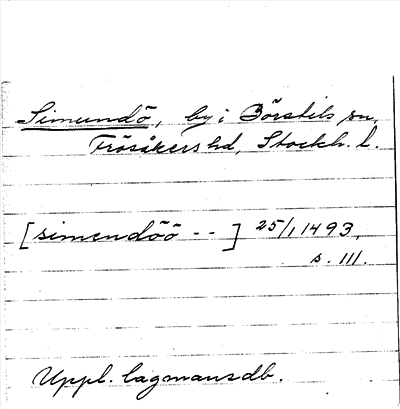 Simundö, by i Börstils sn,
Frösåkers hd, Stockh. l.
[simendöö - - ] 25/1 1493,
s. 111.
Uppl. lagmansdb.